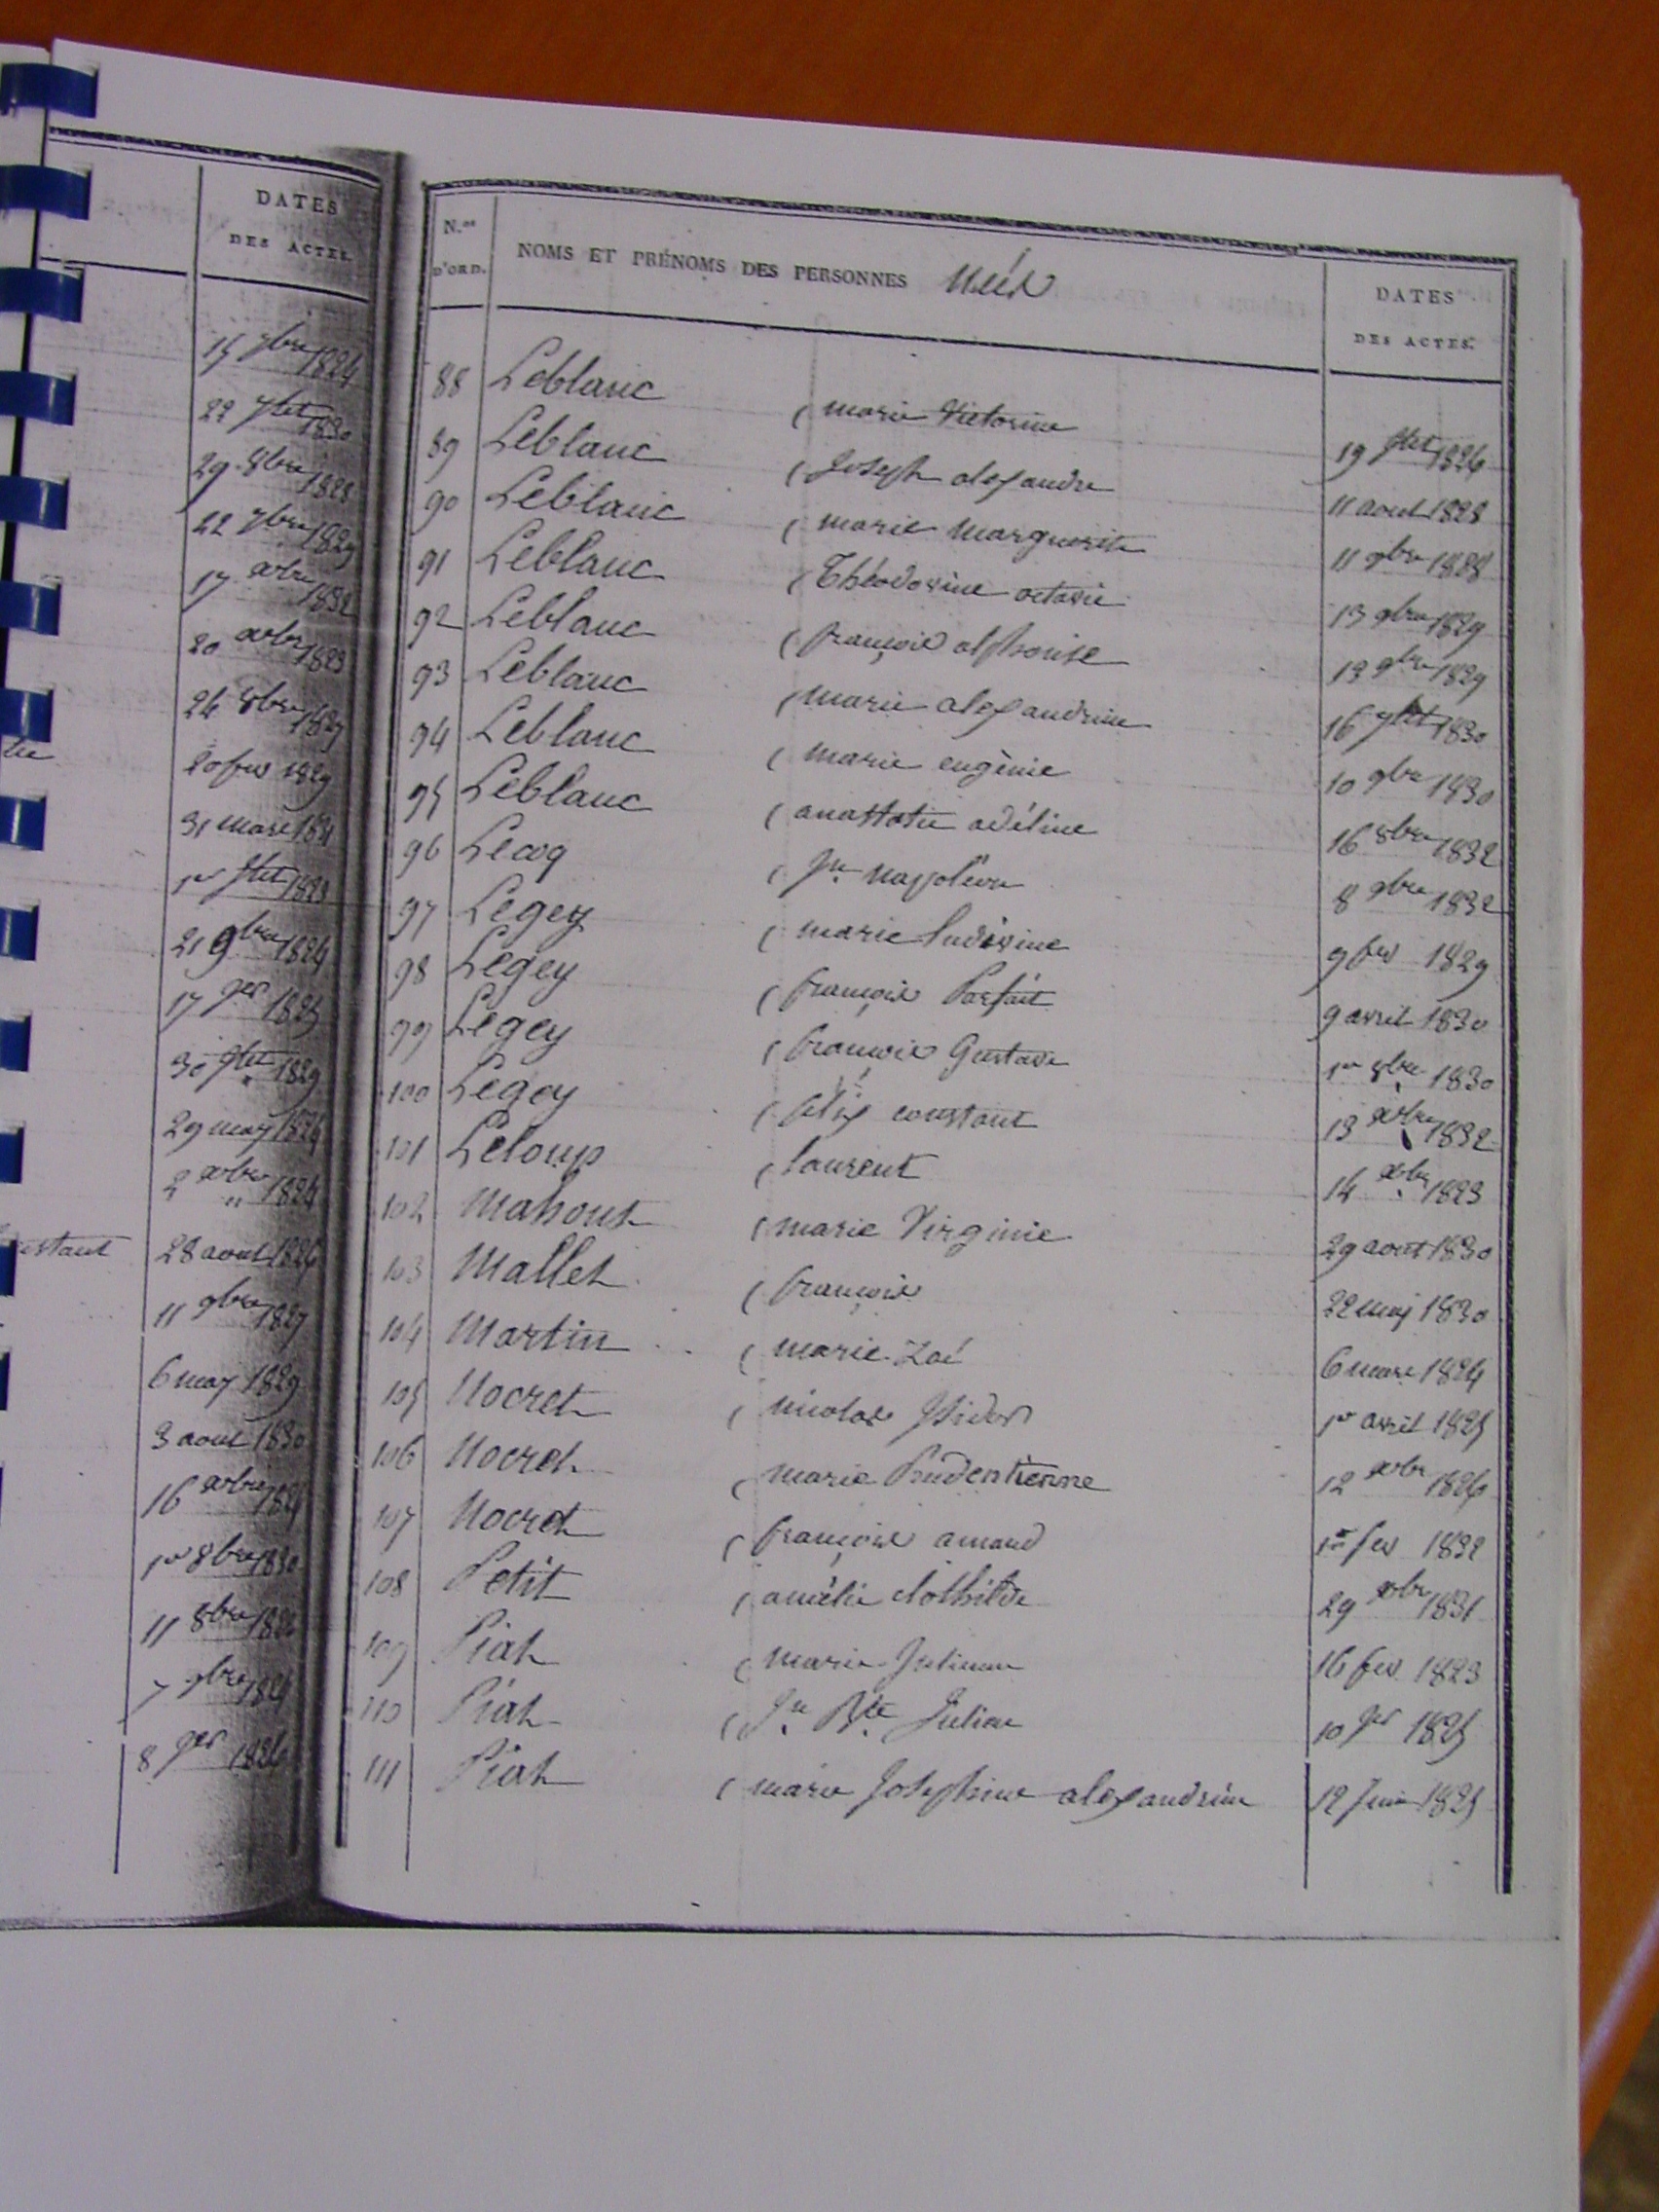 DATES
DES ACTES.
15 7bre 1824
22 Jlet 1830
29 8bre 1828
22 7bre 1829
17 xbre 1832
20 xbre 1823
24 8bre 1827
20 fev 1829
31 mars
1er Jlet 1823
21 9bre 1824
17 Jer 1825
30 Jlet 1829
29 may 1824
2 xbre 1824
stant 28 aout 1826
11 9bre 1827
6 may 1829
3 aout 1830
16 xbre
1er 8bre 1830
11 8bre
7 9bre
8 Jer 1826
N.os
D'ORD.
NOMS ET PRÉNOMS DES PERSONNES Nées
DATES
DES ACTES.
88 Leblanc ( marie Victorine 19 Jlet 1826
89 Leblanc ( Joseph alexandre 11 aout 1828
90 Leblanc ( marie marguerite 11 9bre 1828
91 Leblanc ( Théodorine octavie 13 9bre 1829
92 Leblanc ( françois alphonse 13 9bre 1829
93 Leblanc ( marie alexandrine 16 Jlet 1830
94 Leblanc ( marie eugènie 10 9bre 1830
95 Leblanc ( anastatie adéline 16 8bre 1832
96 Lecoq ( Jn Napoléon 8 9bre 1832
97 Legey ( marie ludivine 9 fev 1829
98 Legey ( françois Parfait 9 avril 1830
99 Legey ( françois Gustave 1er 8bre 1830
100 Legey ( félix constant 13 xbre 1832
101 Leloup ( laurent 14 xbre 1823
102 Mahout ( marie Virginie 29 aout 1830
103 Mallet ( françois 22 maj 1830
104 Martin ( marie Zoé 6 mars 1824
105 Nocret ( nicolas Isidor 1er avril 1825
106 Nocret ( marie Prudentienne 12 xbre 1826
107 Nocret ( françois amand 1er fev 1832
108 Petit ( amélie clothilde 29 xbre 1831
109 Piat ( marie Julienne 16 fev 1823
110 Piat ( Jn Bte Julien 10 Jer 1825
111 Piat ( marie Josephine alexandrine 12 Juin 1825